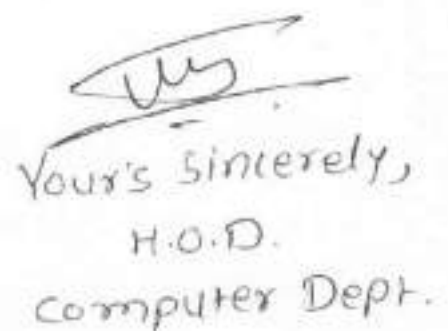 Your's sincerely,
H.O.D.
Computer Dept.